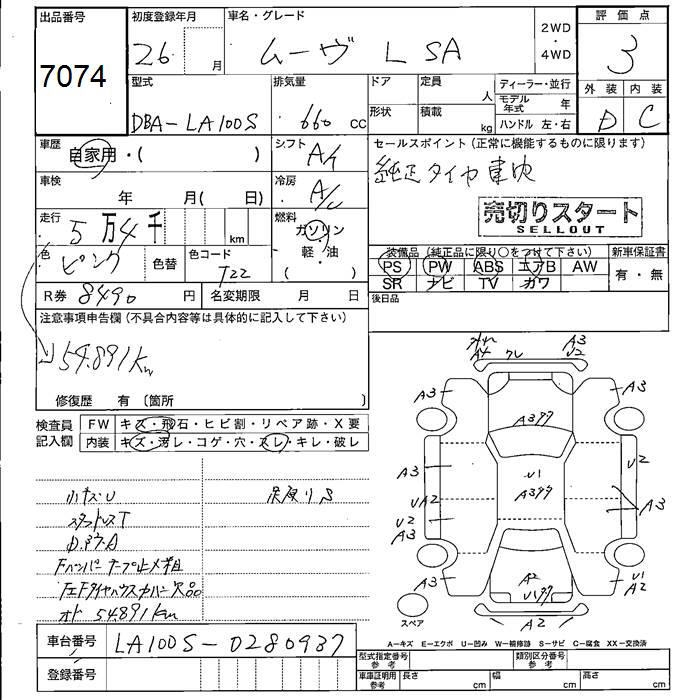 出品番号 初度登録年月 車名・グレード 2WD・4WD 評価点
7074 26 月 ムーヴ L SA 3
型式 排気量 ドア 定員 人 ディーラー・並行 外装 内装
DBA-LA100S 660 cc 形状 積載 kg モデル年式 年 D C
ハンドル 左・右
車歴 自家用・( ) シフト AT セールスポイント(正常に機能するものに限ります)
純正タイヤ車内
車検 年 月( 日) 冷房 A/C
売切りスタート
SELLOUT
走行 5万4千 km 燃料 ガソリン・軽・油 ( )
色 ピンク 色替 色コード T22
装備品(純正品に限り○をつけて下さい) 新車保証書
PS PW ABS エアB AW 有・無
SR ナビ TV カワ
R券 8490 円 名変期限 月 日 後日品
注意事項申告欄(不具合内容等は具体的に記入して下さい)
54.891km
修復歴 有 〔箇所 〕
検査員記入欄 FW キズ・飛石・ヒビ割・リペア跡・X要
内装 キズ・汚レ・コゲ・穴・スレ・キレ・破レ
A4 クレ U2
A3 A3
A3 U1 U2
UA2 A3
U2
A3
A3 A2 U1
A2
A2
小キズU
Fバンパー
欠品
54.891km
スペア
A-キズ E-エクボ U-凹み W-補修跡 S-サビ C-腐食 XX-交換済
車台番号 LA100S-0280937
登録番号
型式指定番号 参考 類別区分番号 参考
車庫証明用 参考 長さ cm 幅 cm 高さ cm